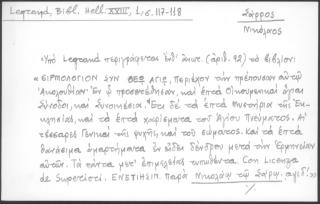 Legrand, Bibl. Hell. XXIII, 1, σ. 117-118
Σάρρος
Νικόλαος
Ὑπὸ Legrand περιγράφεται ἐνθ' ἀνωτ. (ἀριθ. 92) τὸ βιβλίον:
« ΕΙΡΜΟΛΟΓΙΟΝ ΣΥΝ ΘΕΩ ΑΓΙΩ, Περιέχον τὴν πρέπουσαν αὐτῷ
Ἀκολουθίαν Ἐν ᾧ προσετέθησαν, καὶ ἑπτὰ Οἰκουμενικαὶ ἅγιαι
Σύνοδοι, καὶ Συνοπτικαί. Ἔτι δὲ τὰ ἑπτὰ Μυστήρια τῆς Ἐκ-
κλησίας, καὶ τὰ ἑπτὰ χαρίσματα τοῦ Ἁγίου Πνεύματος. Αἱ
τέσσαρες Γενικαὶ τῆς ψυχῆς, καὶ τοῦ σώματος. Καὶ τὰ ἑπτὰ
θανάσιμα ἁμαρτήματα ἐν εἴδει δένδρου μετὰ τὴν Ἑρμηνείαν
αὐτῶν. Τὰ πάντα μετ' ἐπιμελείας τυπωθέντα. Con Licenza
de Superiori. ΕΝΕΤΙΗΣΙΝ. παρὰ Νικολάῳ τῷ Σάρῳ.